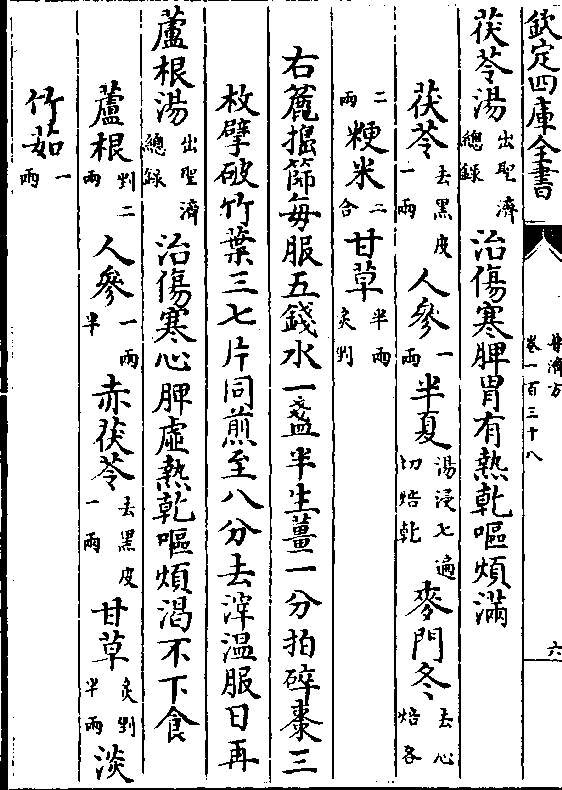 欽定四庫全書
普濟方
卷一百三十八
六
茯苓湯出聖濟總錄治傷寒脾胃有熱乾嘔煩滿
茯苓去黑皮一兩人參一兩半夏湯浸七遍切焙乾麥門冬去心焙各
二兩粳米二合甘草半兩炙剉
右麄搗篩每服五錢水一盞半生薑一分拍碎棗三
枚擘破竹葉三七片同煎至八分去滓温服日再
蘆根湯出聖濟總錄治傷寒心脾虛熱乾嘔煩渴不下食
蘆根剉二兩人參一兩半赤茯苓去黑皮一兩甘草炙剉半兩淡
竹茹一兩